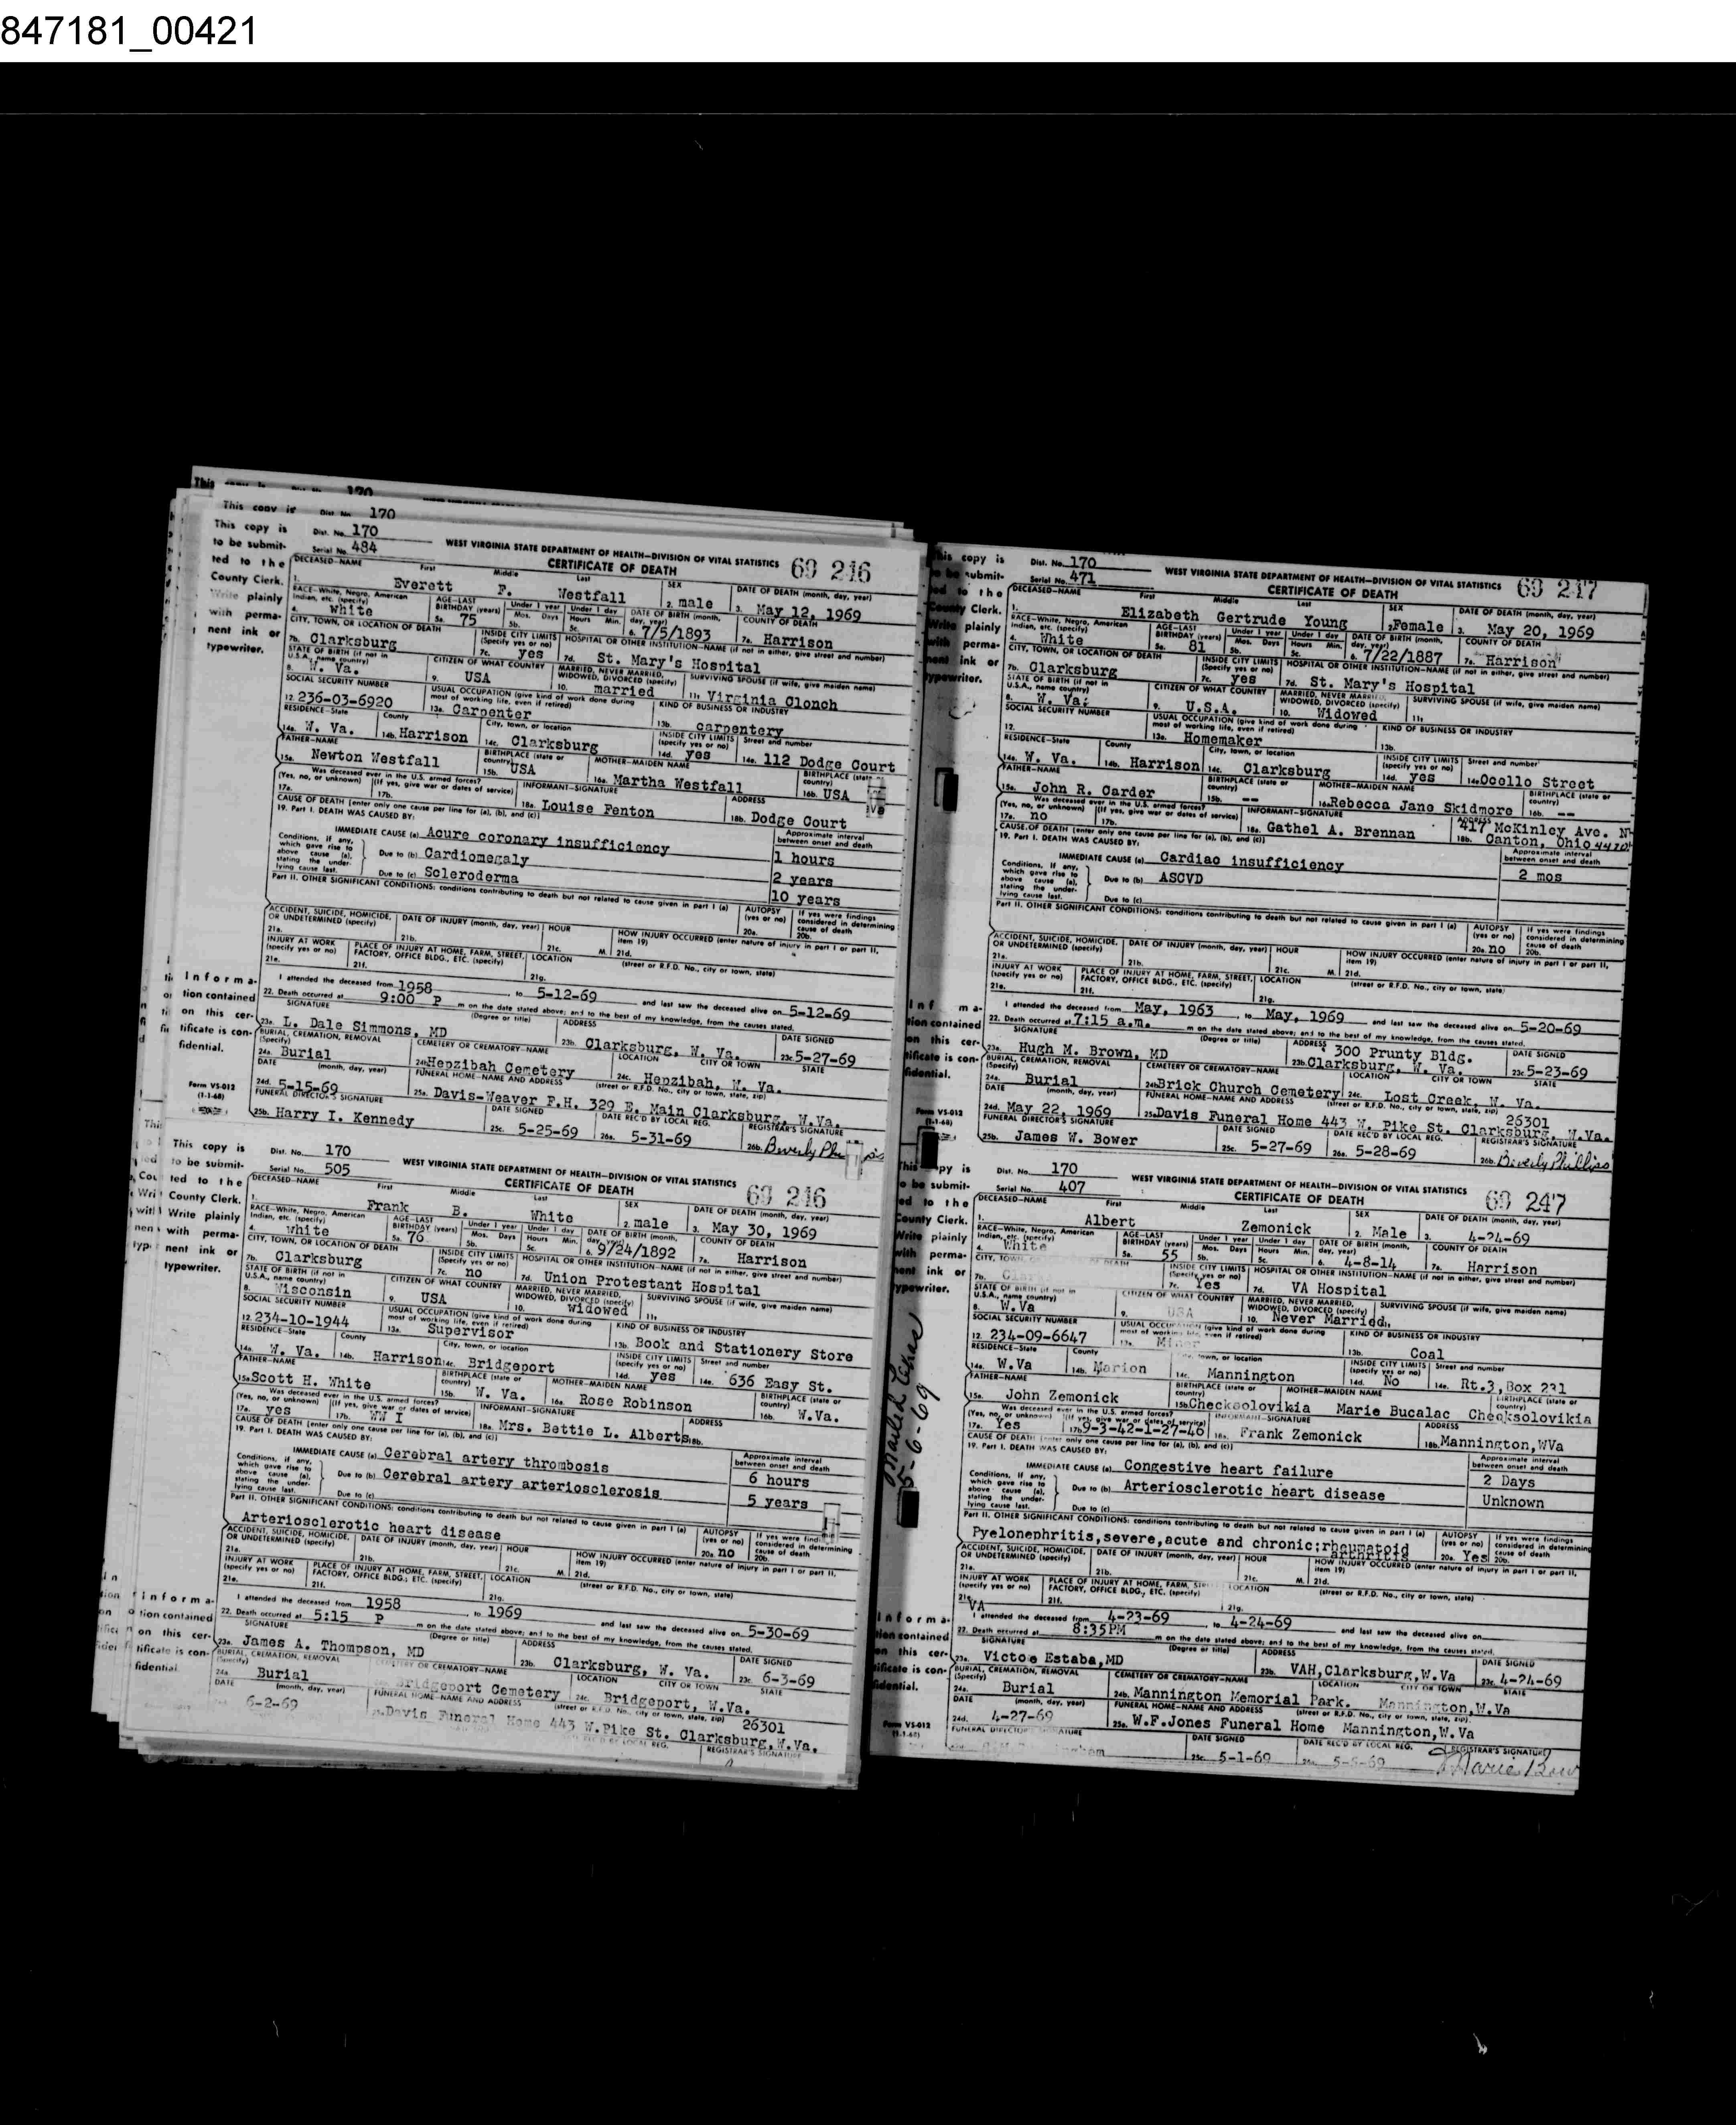 847181_00421
This copy is
This copy is Dist. No. 170
to be submit- Serial No. 484
WEST VIRGINIA STATE DEPARTMENT OF HEALTH—DIVISION OF VITAL STATISTICS 69 246
ted to the CERTIFICATE OF DEATH
County Clerk.
Write plainly
with perma-
nent ink or
typewriter.
DECEASED—NAME First Middle Last SEX DATE OF DEATH (month, day, year)
1. Everett F. Westfall 2. male 3. May 12, 1969
RACE—White, Negro, American Indian, etc. (specify) AGE—LAST BIRTHDAY (years) Under 1 year Mos. Days Under 1 day Hours Min. DATE OF BIRTH (month, day, year) COUNTY OF DEATH
4. White 5a. 75 5b. 5c. 6. 7/5/1893 7a. Harrison
CITY, TOWN, OR LOCATION OF DEATH INSIDE CITY LIMITS (Specify yes or no) HOSPITAL OR OTHER INSTITUTION—NAME (if not in either, give street and number)
7b. Clarksburg 7c. yes 7d. St. Mary's Hospital
STATE OF BIRTH (if not in U.S.A., name country) CITIZEN OF WHAT COUNTRY MARRIED, NEVER MARRIED, WIDOWED, DIVORCED (specify) SURVIVING SPOUSE (if wife, give maiden name)
8. W. Va. 9. USA 10. married 11. Virginia Clonch
SOCIAL SECURITY NUMBER USUAL OCCUPATION (give kind of work done during most of working life, even if retired) KIND OF BUSINESS OR INDUSTRY
12. 236-03-6920 13a. Carpenter 13b. carpentery
RESIDENCE—State County City, town, or location INSIDE CITY LIMITS (specify yes or no) Street and number
14a. W. Va. 14b. Harrison 14c. Clarksburg 14d. yes 14e. 112 Dodge Court
FATHER—NAME BIRTHPLACE (state or country) MOTHER—MAIDEN NAME BIRTHPLACE (state or country)
15a. Newton Westfall 15b. USA 16a. Martha Westfall 16b. USA
Was deceased ever in the U.S. armed forces? (Yes, no, or unknown) (If yes, give war or dates of service) INFORMANT—SIGNATURE ADDRESS
17a. 17b. 18a. Louise Fenton 18b. Dodge Court
CAUSE OF DEATH [enter only one cause per line for (a), (b), and (c)]
19. Part I. DEATH WAS CAUSED BY: Approximate interval between onset and death
IMMEDIATE CAUSE (a) Acure coronary insufficiency 1 hours
Conditions, if any, which gave rise to above cause (a), stating the under- lying cause last.
Due to (b) Cardiomegaly 2 years
Due to (c) Scleroderma 10 years
Part II. OTHER SIGNIFICANT CONDITIONS: conditions contributing to death but not related to cause given in part I (a) AUTOPSY (yes or no) If yes were findings considered in determining cause of death
20a. 20b.
ACCIDENT, SUICIDE, HOMICIDE, OR UNDETERMINED (specify) DATE OF INJURY (month, day, year) HOUR HOW INJURY OCCURRED (enter nature of injury in part I or part II, item 19)
21a. 21b. 21c. M. 21d.
INJURY AT WORK (specify yes or no) PLACE OF INJURY AT HOME, FARM, STREET, FACTORY, OFFICE BLDG., ETC. (specify) LOCATION (street or R.F.D. No., city or town, state)
21e. 21f. 21g.
Informa- tion contained on this cer- tificate is con- fidential.
I attended the deceased from 1958 to 5-12-69 and last saw the deceased alive on 5-12-69
22. Death occurred at 9:00 P m on the date stated above; and to the best of my knowledge, from the causes stated.
SIGNATURE (Degree or title) ADDRESS DATE SIGNED
23a. L. Dale Simmons, MD 23b. Clarksburg, W. Va. 23c. 5-27-69
BURIAL, CREMATION, REMOVAL (Specify) CEMETERY OR CREMATORY—NAME LOCATION CITY OR TOWN STATE
24a. Burial 24b. Hepzibah Cemetery 24c. Hepzibah, W. Va.
DATE (month, day, year) FUNERAL HOME—NAME AND ADDRESS (street or R.F.D. No., city or town, state, zip)
24d. 5-15-69 25a. Davis-Weaver F.H. 329 E. Main Clarksburg, W.Va.
Form VS-012 (1-1-68)
FUNERAL DIRECTOR'S SIGNATURE DATE SIGNED DATE REC'D BY LOCAL REG. REGISTRAR'S SIGNATURE
25b. Harry I. Kennedy 25c. 5-25-69 26a. 5-31-69 26b. Beverly
This copy is Dist. No. 170
to be submit- Serial No. 505
WEST VIRGINIA STATE DEPARTMENT OF HEALTH—DIVISION OF VITAL STATISTICS 69 246
ted to the CERTIFICATE OF DEATH
County Clerk.
Write plainly
with perma-
nent ink or
typewriter.
DECEASED—NAME First Middle Last SEX DATE OF DEATH (month, day, year)
1. Frank B. White 2. male 3. May 30, 1969
RACE—White, Negro, American Indian, etc. (specify) AGE—LAST BIRTHDAY (years) Under 1 year Mos. Days Under 1 day Hours Min. DATE OF BIRTH (month, day, year) COUNTY OF DEATH
4. White 5a. 76 5b. 5c. 6. 9/24/1892 7a. Harrison
CITY, TOWN, OR LOCATION OF DEATH INSIDE CITY LIMITS (Specify yes or no) HOSPITAL OR OTHER INSTITUTION—NAME (if not in either, give street and number)
7b. Clarksburg 7c. no 7d. Union Protestant Hospital
STATE OF BIRTH (if not in U.S.A., name country) CITIZEN OF WHAT COUNTRY MARRIED, NEVER MARRIED, WIDOWED, DIVORCED (specify) SURVIVING SPOUSE (if wife, give maiden name)
8. Wisconsin 9. USA 10. Widowed 11.
SOCIAL SECURITY NUMBER USUAL OCCUPATION (give kind of work done during most of working life, even if retired) KIND OF BUSINESS OR INDUSTRY
12. 234-10-1944 13a. Supervisor 13b. Book and Stationery Store
RESIDENCE—State County City, town, or location INSIDE CITY LIMITS (specify yes or no) Street and number
14a. W. Va. 14b. Harrison 14c. Bridgeport 14d. yes 14e. 636 Easy St.
FATHER—NAME BIRTHPLACE (state or country) MOTHER—MAIDEN NAME BIRTHPLACE (state or country)
15a. Scott H. White 15b. W. Va. 16a. Rose Robinson 16b. W.Va.
Was deceased ever in the U.S. armed forces? (Yes, no, or unknown) (If yes, give war or dates of service) INFORMANT—SIGNATURE ADDRESS
17a. yes 17b. WW I 18a. Mrs. Bettie L. Alberts 18b.
CAUSE OF DEATH [enter only one cause per line for (a), (b), and (c)]
19. Part I. DEATH WAS CAUSED BY: Approximate interval between onset and death
IMMEDIATE CAUSE (a) Cerebral artery thrombosis 6 hours
Conditions, if any, which gave rise to above cause (a), stating the under- lying cause last.
Due to (b) Cerebral artery arteriosclerosis 5 years
Due to (c)
Part II. OTHER SIGNIFICANT CONDITIONS: conditions contributing to death but not related to cause given in part I (a) AUTOPSY (yes or no) If yes were findings considered in determining cause of death
Arteriosclerotic heart disease 20a. no 20b.
ACCIDENT, SUICIDE, HOMICIDE, OR UNDETERMINED (specify) DATE OF INJURY (month, day, year) HOUR HOW INJURY OCCURRED (enter nature of injury in part I or part II, item 19)
21a. 21b. 21c. M. 21d.
INJURY AT WORK (specify yes or no) PLACE OF INJURY AT HOME, FARM, STREET, FACTORY, OFFICE BLDG., ETC. (specify) LOCATION (street or R.F.D. No., city or town, state)
21e. 21f. 21g.
Informa- tion contained on this cer- tificate is con- fidential
I attended the deceased from 1958 to 1969 and last saw the deceased alive on 5-30-69
22. Death occurred at 5:15 P m on the date stated above; and to the best of my knowledge, from the causes stated.
SIGNATURE (Degree or title) ADDRESS DATE SIGNED
23a. James A. Thompson, MD 23b. Clarksburg, W. Va. 23c. 6-3-69
BURIAL, CREMATION, REMOVAL (Specify) CEMETERY OR CREMATORY—NAME LOCATION CITY OR TOWN STATE
24a. Burial Bridgeport Cemetery 24c. Bridgeport, W.Va.
DATE (month, day, year) FUNERAL HOME—NAME AND ADDRESS (street or R.F.D. No., city or town, state, zip)
6-2-69 Davis Funeral Home 443 W.Pike St. Clarksburg, W.Va. 26301
REC'D BY LOCAL REG. REGISTRAR'S SIGNATURE
This copy is Dist. No. 170
to be submit- Serial No. 471
WEST VIRGINIA STATE DEPARTMENT OF HEALTH—DIVISION OF VITAL STATISTICS 69 247
ted to the CERTIFICATE OF DEATH
County Clerk.
Write plainly
with perma-
nent ink or
typewriter.
DECEASED—NAME First Middle Last SEX DATE OF DEATH (month, day, year)
1. Elizabeth Gertrude Young 2. Female 3. May 20, 1969
RACE—White, Negro, American Indian, etc. (specify) AGE—LAST BIRTHDAY (years) Under 1 year Mos. Days Under 1 day Hours Min. DATE OF BIRTH (month, day, year) COUNTY OF DEATH
4. White 5a. 81 5b. 5c. 6. 7/22/1887 7a. Harrison
CITY, TOWN, OR LOCATION OF DEATH INSIDE CITY LIMITS (Specify yes or no) HOSPITAL OR OTHER INSTITUTION—NAME (if not in either, give street and number)
7b. Clarksburg 7c. yes 7d. St. Mary's Hospital
STATE OF BIRTH (if not in U.S.A., name country) CITIZEN OF WHAT COUNTRY MARRIED, NEVER MARRIED, WIDOWED, DIVORCED (specify) SURVIVING SPOUSE (if wife, give maiden name)
8. W. Va. 9. U.S.A. 10. Widowed 11.
SOCIAL SECURITY NUMBER USUAL OCCUPATION (give kind of work done during most of working life, even if retired) KIND OF BUSINESS OR INDUSTRY
12. 13a. Homemaker 13b.
RESIDENCE—State County City, town, or location INSIDE CITY LIMITS (specify yes or no) Street and number
14a. W. Va. 14b. Harrison 14c. Clarksburg 14d. yes 14e. Ocello Street
FATHER—NAME BIRTHPLACE (state or country) MOTHER—MAIDEN NAME BIRTHPLACE (state or country)
15a. John R. Carder 15b. -- 16a. Rebecca Jane Skidmore 16b. --
Was deceased ever in the U.S. armed forces? (Yes, no, or unknown) (If yes, give war or dates of service) INFORMANT—SIGNATURE ADDRESS 417 McKinley Ave. N
17a. no 17b. 18a. Gathel A. Brennan 18b. Canton, Ohio
CAUSE OF DEATH [enter only one cause per line for (a), (b), and (c)]
19. Part I. DEATH WAS CAUSED BY: Approximate interval between onset and death
IMMEDIATE CAUSE (a) Cardiac insufficiency 2 mos
Conditions, if any, which gave rise to above cause (a), stating the under- lying cause last.
Due to (b) ASCVD
Due to (c)
Part II. OTHER SIGNIFICANT CONDITIONS: conditions contributing to death but not related to cause given in part I (a) AUTOPSY (yes or no) If yes were findings considered in determining cause of death
20a. no 20b.
ACCIDENT, SUICIDE, HOMICIDE, OR UNDETERMINED (specify) DATE OF INJURY (month, day, year) HOUR HOW INJURY OCCURRED (enter nature of injury in part I or part II, item 19)
21a. 21b. 21c. M. 21d.
INJURY AT WORK (specify yes or no) PLACE OF INJURY AT HOME, FARM, STREET, FACTORY, OFFICE BLDG., ETC. (specify) LOCATION (street or R.F.D. No., city or town, state)
21e. 21f. 21g.
I attended the deceased from May, 1963 to May, 1969 and last saw the deceased alive on 5-20-69
22. Death occurred at 7:15 a.m. m on the date stated above; and to the best of my knowledge, from the causes stated.
SIGNATURE (Degree or title) ADDRESS 300 Prunty Bldg. DATE SIGNED
23a. Hugh M. Brown, MD 23b. Clarksburg, W. Va. 23c. 5-23-69
BURIAL, CREMATION, REMOVAL (Specify) CEMETERY OR CREMATORY—NAME LOCATION CITY OR TOWN STATE
24a. Burial 24b. Brick Church Cemetery 24c. Lost Creek, W. Va.
DATE (month, day, year) FUNERAL HOME—NAME AND ADDRESS (street or R.F.D. No., city or town, state, zip) 26301
24d. May 22, 1969 25a. Davis Funeral Home 443 W. Pike St. Clarksburg, W.Va.
FUNERAL DIRECTOR'S SIGNATURE DATE SIGNED DATE REC'D BY LOCAL REG. REGISTRAR'S SIGNATURE
25b. James W. Bower 25c. 5-27-69 26a. 5-28-69 26b. Beverly Phillips
Dist. No. 170
Serial No. 407
WEST VIRGINIA STATE DEPARTMENT OF HEALTH—DIVISION OF VITAL STATISTICS 69 247
CERTIFICATE OF DEATH
5-6-69
DECEASED—NAME First Middle Last SEX DATE OF DEATH (month, day, year)
1. Albert Zemonick 2. Male 3. 4-24-69
RACE—White, Negro, American Indian, etc. (specify) AGE—LAST BIRTHDAY (years) Under 1 year Mos. Days Under 1 day Hours Min. DATE OF BIRTH (month, day, year) COUNTY OF DEATH
4. White 5a. 55 5b. 5c. 6. 4-8-14 7a. Harrison
INSIDE CITY LIMITS (Specify yes or no) HOSPITAL OR OTHER INSTITUTION—NAME (if not in either, give street and number)
7b. 7c. Yes 7d. VA Hospital
STATE OF BIRTH (if not in U.S.A., name country) CITIZEN OF WHAT COUNTRY MARRIED, NEVER MARRIED, WIDOWED, DIVORCED (specify) SURVIVING SPOUSE (if wife, give maiden name)
8. W.Va 9. USA 10. Never Married 11.
SOCIAL SECURITY NUMBER USUAL OCCUPATION (give kind of work done during most of working life, even if retired) KIND OF BUSINESS OR INDUSTRY
12. 234-09-6647 13a. Miner 13b. Coal
RESIDENCE—State County City, town, or location INSIDE CITY LIMITS (specify yes or no) Street and number
14a. W.Va 14b. Marion 14c. Mannington 14d. No 14e. Rt.3, Box 231
FATHER—NAME BIRTHPLACE (state or country) MOTHER—MAIDEN NAME BIRTHPLACE (state or country)
15a. John Zemonick 15b. Checksolovikia Marie Bucalac Checksolovikia
Was deceased ever in the U.S. armed forces? (Yes, no, or unknown) (If yes, give war or dates of service) INFORMANT—SIGNATURE ADDRESS
17a. Yes 17b. 9-3-42-1-27-46 18a. Frank Zemonick 18b. Mannington, WVa
CAUSE OF DEATH [enter only one cause per line for (a), (b), and (c)]
19. Part I. DEATH WAS CAUSED BY: Approximate interval between onset and death
IMMEDIATE CAUSE (a) Congestive heart failure 2 Days
Conditions, if any, which gave rise to above cause (a), stating the under- lying cause last.
Due to (b) Arteriosclerotic heart disease Unknown
Due to (c)
Part II. OTHER SIGNIFICANT CONDITIONS: conditions contributing to death but not related to cause given in part I (a) AUTOPSY (yes or no) If yes were findings considered in determining cause of death
Pyelonephritis, severe, acute and chronic; rheumatoid arthritis 20a. Yes 20b.
ACCIDENT, SUICIDE, HOMICIDE, OR UNDETERMINED (specify) DATE OF INJURY (month, day, year) HOUR HOW INJURY OCCURRED (enter nature of injury in part I or part II, item 19)
21a. 21b. 21c. M. 21d.
INJURY AT WORK (specify yes or no) PLACE OF INJURY AT HOME, FARM, STREET, FACTORY, OFFICE BLDG., ETC. (specify) LOCATION (street or R.F.D. No., city or town, state)
21e. 21f. 21g.
VA I attended the deceased from 4-23-69 to 4-24-69 and last saw the deceased alive on
22. Death occurred at 8:35PM m on the date stated above; and to the best of my knowledge, from the causes stated.
SIGNATURE (Degree or title) ADDRESS DATE SIGNED
23a. Victoe Estaba, MD 23b. VAH, Clarksburg, W.Va 23c. 4-24-69
BURIAL, CREMATION, REMOVAL (Specify) CEMETERY OR CREMATORY—NAME LOCATION CITY OR TOWN STATE
24a. Burial 24b. Mannington Memorial Park. Mannington, W.Va
DATE (month, day, year) FUNERAL HOME—NAME AND ADDRESS (street or R.F.D. No., city or town, state, zip)
24d. 4-27-69 25a. W.F.Jones Funeral Home Mannington, W.Va
Form VS-012 (1-1-68)
DATE SIGNED DATE REC'D BY LOCAL REG. REGISTRAR'S SIGNATURE
25c. 5-1-69 Marie